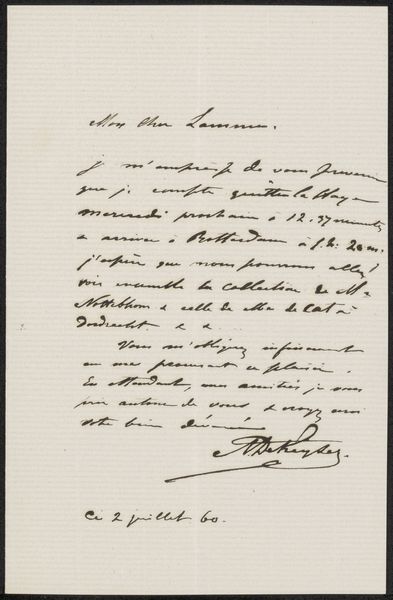 Mon cher Lamme.
je m'empresse de vous prevenir
que je compte quitter la Haye
mercredi prochain à 12.37 minutes
& arriver à Rotterdam à 1.h. 20 m.
j'espère que nous pourrons aller
voir ensemble la Collection de Mr
Nottebohm & celle de Mr de Cat à
dordrecht. & &.
Vous m'obligerez infiniment
en me procurant ce plaisir.
En attendant, mes amitiés je vous
prie autour de vous & croyez moi
votre bien dévoué
NDeKeyser.
Ce 2 juillet 60.